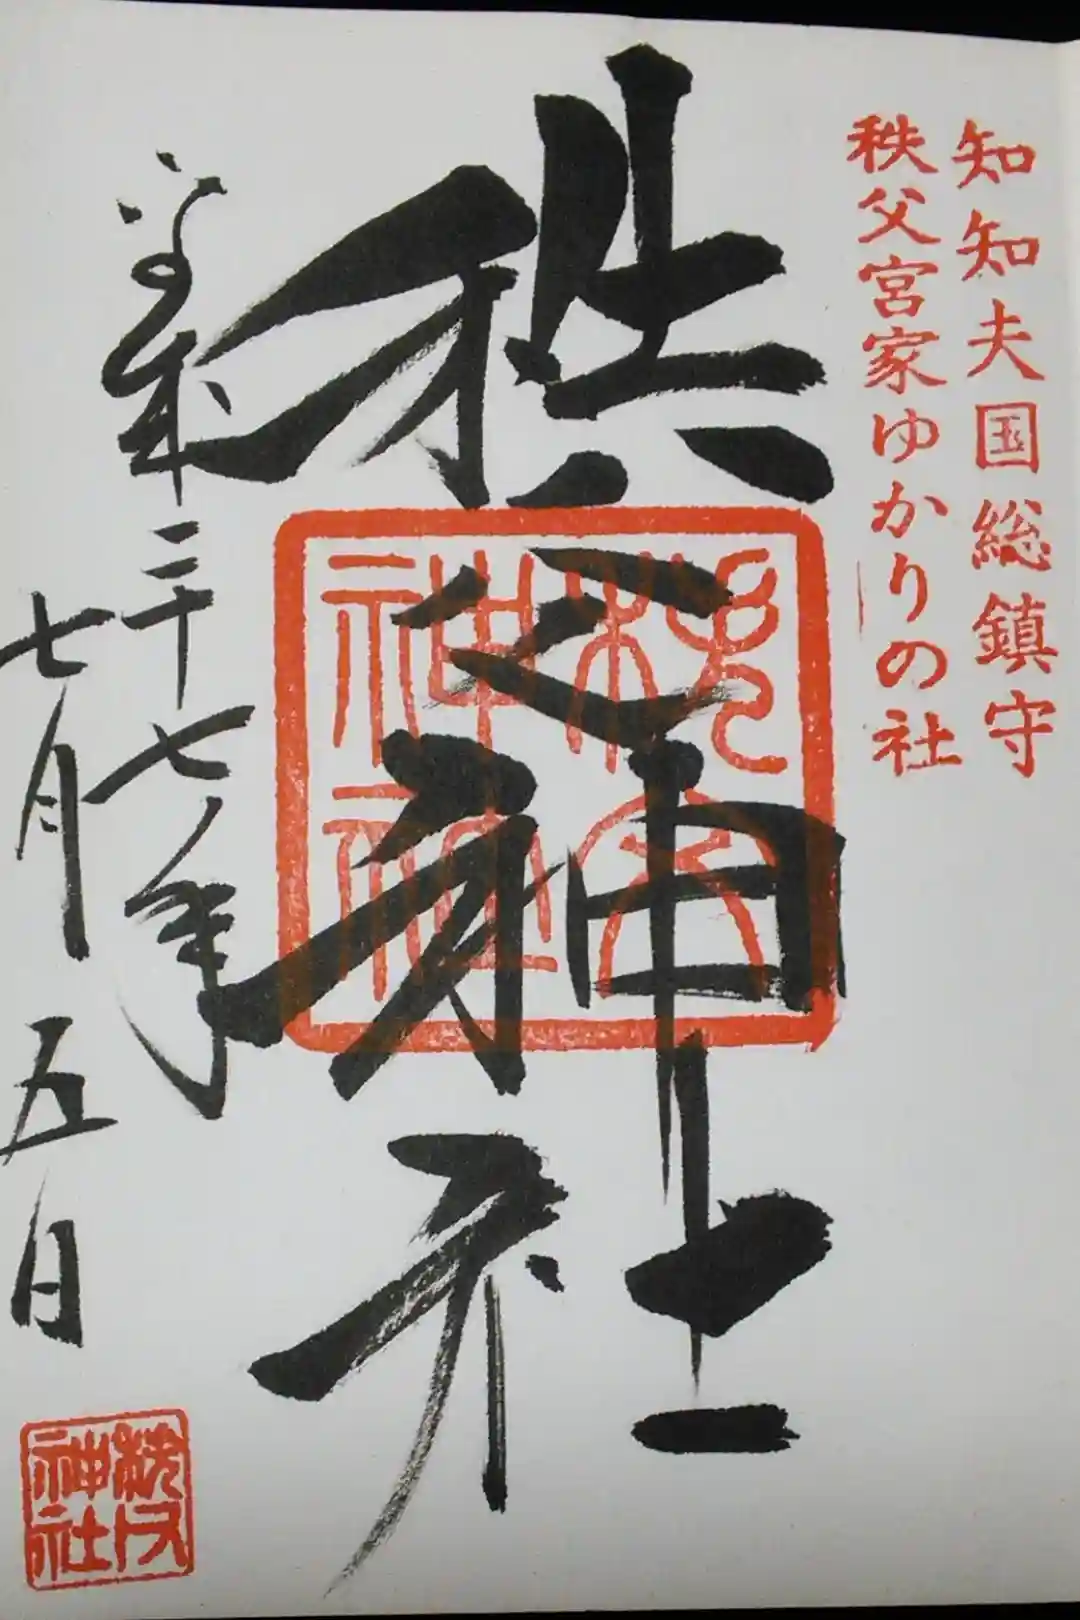 知知夫国総鎮守
秩父宮家ゆかりの社
秩父神社
秩父神社
平成二十七年
七月五日
秩父神社